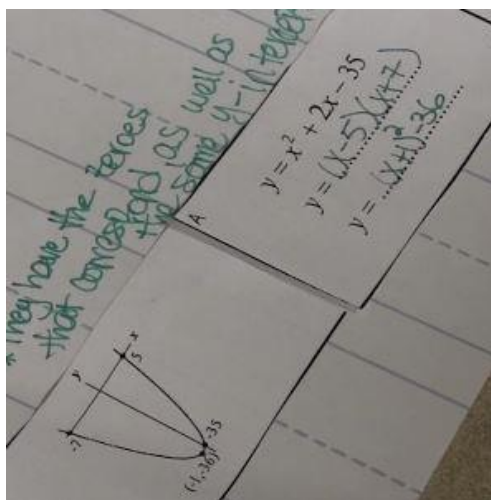 *They have the zeroes
that correspond as well as
the same y-intercept
A
y = x² + 2x - 35
y = (x-5)(x+7)
y = (x+1)²-36
-7
y
x
5
-35
(-1,-36)